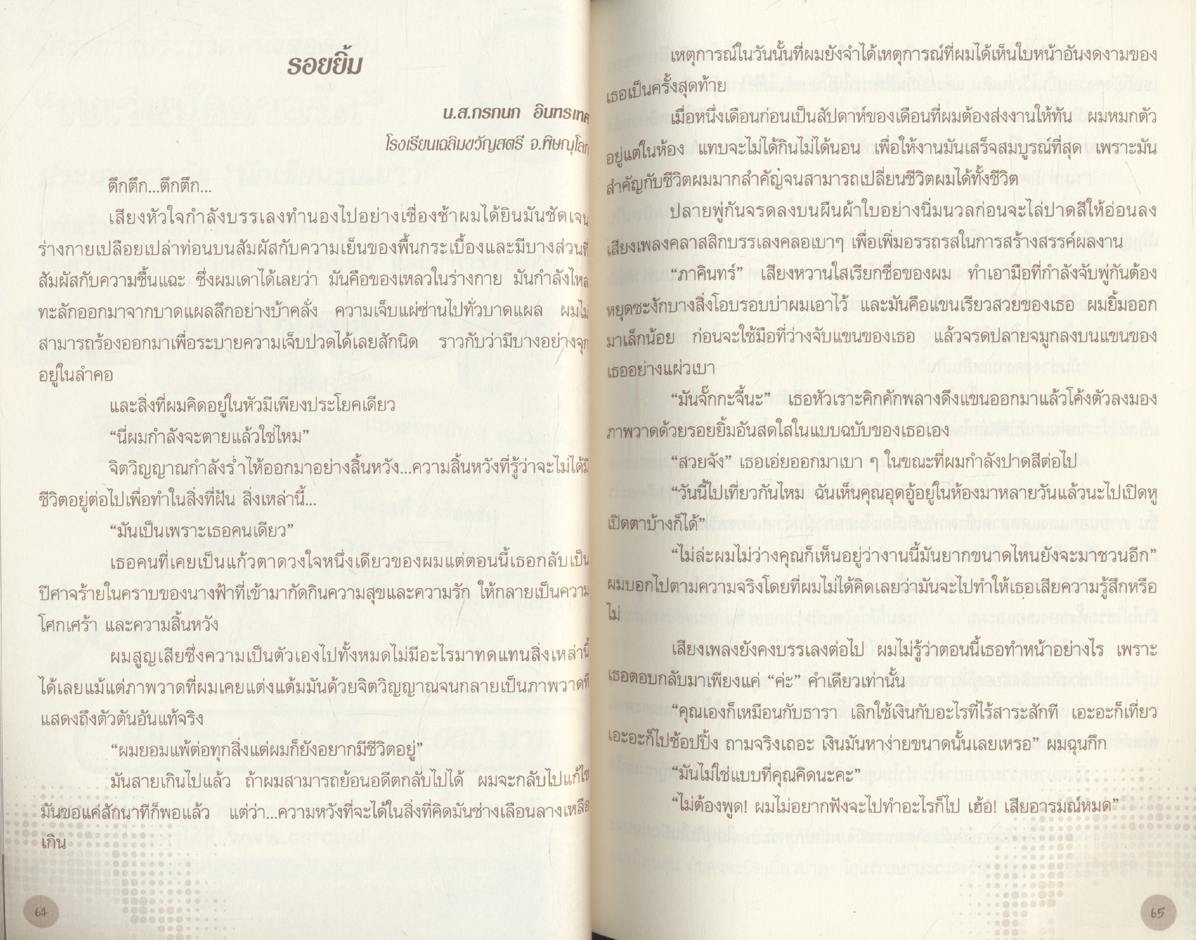 รอยยิ้ม
น.ส.กรกนก อินทรเทศ
โรงเรียนเฉลิมขวัญสตรี จ.พิษณุโลก
ตึกตึก...ตึกตึก...
เสียงหัวใจกำลังบรรเลงทำนองไปอย่างเชื่องช้าผมได้ยินมันชัดเจน
ร่างกายเปลือยเปล่าท่อนบนสัมผัสกับความเย็นของพื้นกระเบื้องและมีบางส่วนที่
สัมผัสกับความชื้นแฉะ ซึ่งผมเดาได้เลยว่า มันคือของเหลวในร่างกาย มันกำลังไหล
ทะลักออกมาจากบาดแผลลึกอย่างบ้าคลั่ง ความเจ็บแผ่ซ่านไปทั่วบาดแผล ผมไม่
สามารถร้องออกมาเพื่อระบายความเจ็บปวดได้เลยสักนิด ราวกับว่ามีบางอย่างจุก
อยู่ในลำคอ
และสิ่งที่ผมคิดอยู่ในหัวมีเพียงประโยคเดียว
“นี่ผมกำลังจะตายแล้วใช่ไหม”
จิตวิญญาณกำลังร่ำไห้ออกมาอย่างสิ้นหวัง...ความสิ้นหวังที่รู้ว่าจะไม่ได้มี
ชีวิตอยู่ต่อไปเพื่อทำในสิ่งที่ฝัน สิ่งเหล่านี้...
“มันเป็นเพราะเธอคนเดียว”
เธอคนที่เคยเป็นแก้วตาดวงใจหนึ่งเดียวของผมแต่ตอนนี้เธอกลับเป็น
ปีศาจร้ายในคราบของนางฟ้าที่เข้ามากัดกินความสุขและความรัก ให้กลายเป็นความ
โศกเศร้า และความสิ้นหวัง
ผมสูญเสียซึ่งความเป็นตัวเองไปทั้งหมดไม่มีอะไรมาทดแทนสิ่งเหล่านี้
ได้เลยแม้แต่ภาพวาดที่ผมเคยแต่งแต้มมันด้วยจิตวิญญาณจนกลายเป็นภาพวาดที่
แสดงถึงตัวตันอันแท้จริง
“ผมยอมแพ้ต่อทุกสิ่งแต่ผมก็ยังอยากมีชีวิตอยู่”
มันสายเกินไปแล้ว ถ้าผมสามารถย้อนอดีตกลับไปได้ ผมจะกลับไปแก้ไข
มันขอแค่สักนาทีก็พอแล้ว แต่ว่า...ความหวังที่จะได้ในสิ่งที่คิดมันช่างเลือนลางเหลือ
เกิน
64
เหตุการณ์ในวันนั้นที่ผมยังจำได้เหตุการณ์ที่ผมได้เห็นใบหน้าอันงดงามของ
เธอเป็นครั้งสุดท้าย
เมื่อหนึ่งเดือนก่อนเป็นสัปดาห์ของเดือนที่ผมต้องส่งงานให้ทัน ผมหมกตัว
อยู่แต่ในห้อง แทบจะไม่ได้กินไม่ได้นอน เพื่อให้งานมันเสร็จสมบูรณ์ที่สุด เพราะมัน
สำคัญกับชีวิตผมมากสำคัญจนสามารถเปลี่ยนชีวิตผมได้ทั้งชีวิต
ปลายพู่กันจรดลงบนผืนผ้าใบอย่างนิ่มนวลก่อนจะไล่ปาดสีให้อ่อนลง
เสียงเพลงคลาสสิกบรรเลงคลอเบาๆ เพื่อเพิ่มอรรถรสในการสร้างสรรค์ผลงาน
“ภาคินทร์” เสียงหวานใสเรียกชื่อของผม ทำเอามือที่กำลังจับพู่กันต้อง
หยุดชะงักบางสิ่งโอบรอบบ่าผมเอาไว้ และมันคือแขนเรียวสวยของเธอ ผมยิ้มออก
มาเล็กน้อย ก่อนจะใช้มือที่ว่างจับแขนของเธอ แล้วจรดปลายจมูกลงบนแขนของ
เธออย่างแผ่วเบา
“มันจั๊กกะจี้นะ” เธอหัวเราะคิกคักพลางดึงแขนออกมาแล้วโค้งตัวลงมอง
ภาพวาดด้วยรอยยิ้มอันสดใสในแบบฉบับของเธอเอง
“สวยจัง” เธอเอ่ยออกมาเบา ๆ ในขณะที่ผมกำลังปาดสีต่อไป
“วันนี้ไปเที่ยวกันไหม ฉันเห็นคุณอุดอู้อยู่ในห้องมาหลายวันแล้วนะไปเปิดหู
เปิดตาบ้างก็ได้”
“ไม่ล่ะผมไม่ว่างคุณก็เห็นอยู่ว่างานนี้มันยากขนาดไหนยังจะมาชวนอีก”
ผมบอกไปตามความจริงโดยที่ผมไม่ได้คิดเลยว่ามันจะไปทำให้เธอเสียความรู้สึกหรือ
ไม่
เสียงเพลงยังคงบรรเลงต่อไป ผมไม่รู้ว่าตอนนี้เธอทำหน้าอย่างไร เพราะ
เธอตอบกลับมาเพียงแค่ “ค่ะ” คำเดียวเท่านั้น
“คุณเองก็เหมือนกับธารา เลิกใช้เงินกับอะไรที่ไร้สาระสักที เอะอะก็เที่ยว
เอะอะก็ไปช้อปปิ้ง ถามจริงเถอะ เงินมันหาง่ายขนาดนั้นเลยเหรอ” ผมฉุนกึก
“มันไม่ใช่แบบที่คุณคิดนะคะ”
“ไม่ต้องพูด! ผมไม่อยากฟังจะไปทำอะไรก็ไป เฮ้อ! เสียอารมณ์หมด”
65